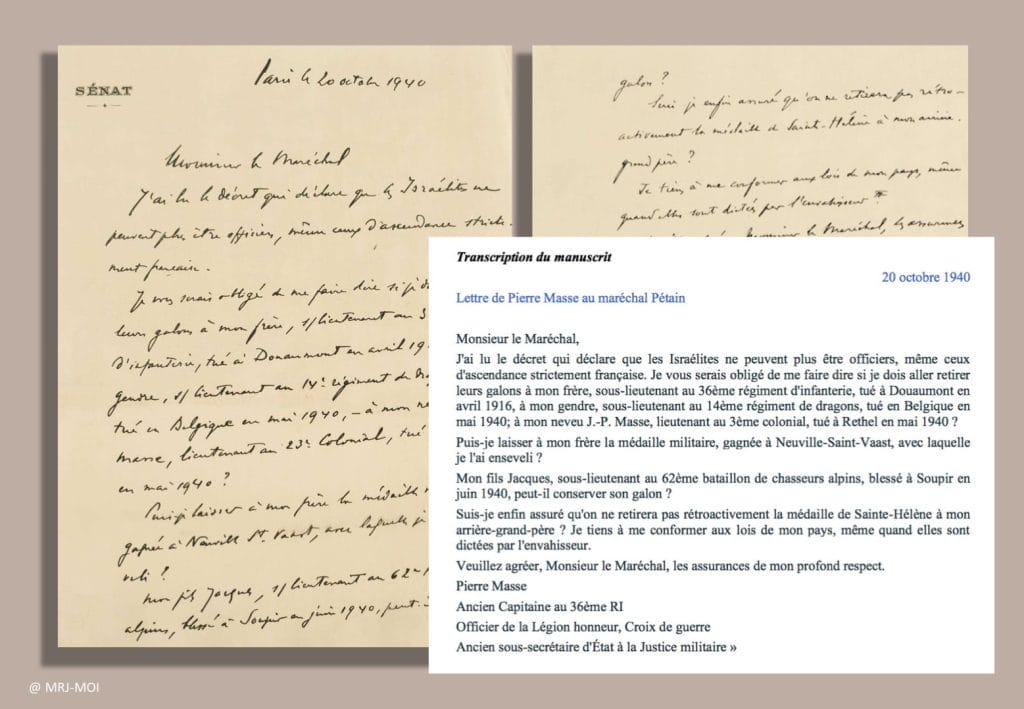 SÉNAT
Paris le 20 octobre 1940
Monsieur le Maréchal
J'ai lu le décret qui déclare que les Israélites ne
peuvent plus être officiers, même ceux d'ascendance stricte-
ment française.
Je vous serais obligé de me faire dire si je d
leurs galons à mon frère, s/lieutenant au 3
d'infanterie, tué à Douaumont en avril 19
gendre, s/lieutenant au 14e régiment de
tué en Belgique en mai 1940, – à mon ne
Masse, lieutenant au 23e Colonial, tué
en mai 1940 ?
Puis-je laisser à mon frère la médaille
gagnée à Neuville St. Vaast, avec laquelle je
veli ?
Mon fils Jacques, s/lieutenant au 62e
alpins, blessé à Soupir en juin 1940, peut-
galon ?
Suis je enfin assuré qu'on ne retirera pas rétro-
activement la médaille de Sainte-Hélène à mon arrière-
grand père ?
Je tiens à me conformer aux lois de mon pays, même
quand elles sont dictées par l'envahisseur
Monsieur le Maréchal, les assurances
Transcription du manuscrit
20 octobre 1940
Lettre de Pierre Masse au maréchal Pétain
Monsieur le Maréchal,
J'ai lu le décret qui déclare que les Israélites ne peuvent plus être officiers, même ceux
d'ascendance strictement française. Je vous serais obligé de me faire dire si je dois aller retirer
leurs galons à mon frère, sous-lieutenant au 36ème régiment d'infanterie, tué à Douaumont en
avril 1916, à mon gendre, sous-lieutenant au 14ème régiment de dragons, tué en Belgique en
mai 1940; à mon neveu J.-P. Masse, lieutenant au 3ème colonial, tué à Rethel en mai 1940 ?
Puis-je laisser à mon frère la médaille militaire, gagnée à Neuville-Saint-Vaast, avec laquelle
je l'ai enseveli ?
Mon fils Jacques, sous-lieutenant au 62ème bataillon de chasseurs alpins, blessé à Soupir en
juin 1940, peut-il conserver son galon ?
Suis-je enfin assuré qu'on ne retirera pas rétroactivement la médaille de Sainte-Hélène à mon
arrière-grand-père ? Je tiens à me conformer aux lois de mon pays, même quand elles sont
dictées par l'envahisseur.
Veuillez agréer, Monsieur le Maréchal, les assurances de mon profond respect.
Pierre Masse
Ancien Capitaine au 36ème RI
Officier de la Légion honneur, Croix de guerre
Ancien sous-secrétaire d'État à la Justice militaire »
@ MRJ-MOI